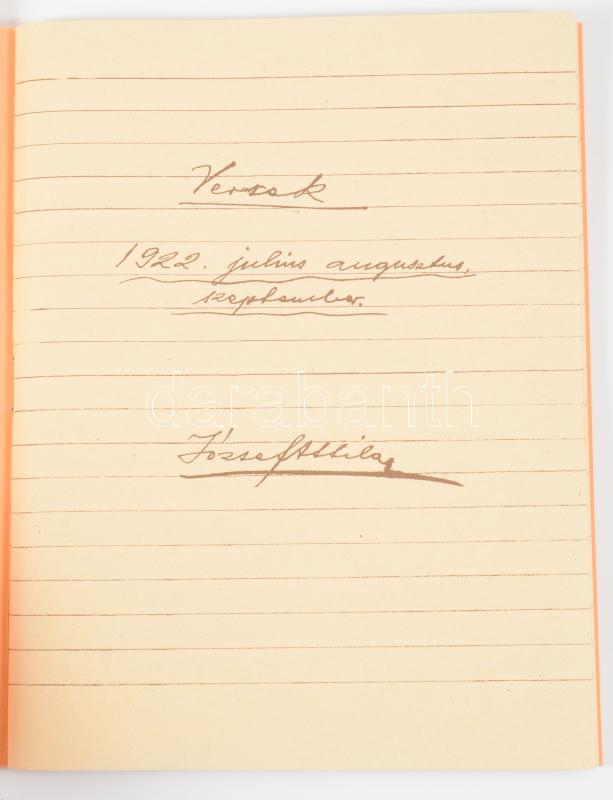 Versek
1922. julius augusztus,
szeptember.
darabanth
József Attila